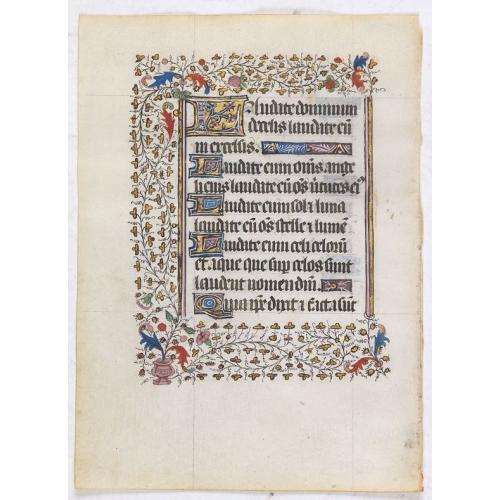 Laudate dominum
de celis laudate eū
in excelsis.
Laudate eum om̄s ange
li eius laudate eū om̄s uirtutes ei⁹
Laudate eum sol ⁊ luna
laudate eū om̄s stelle ⁊ lumē
Laudate eum celi celorū
et aque que sup celos sunt
laudent nomen dn̄i.
Quia ip̄e dixit ⁊ facta sūt